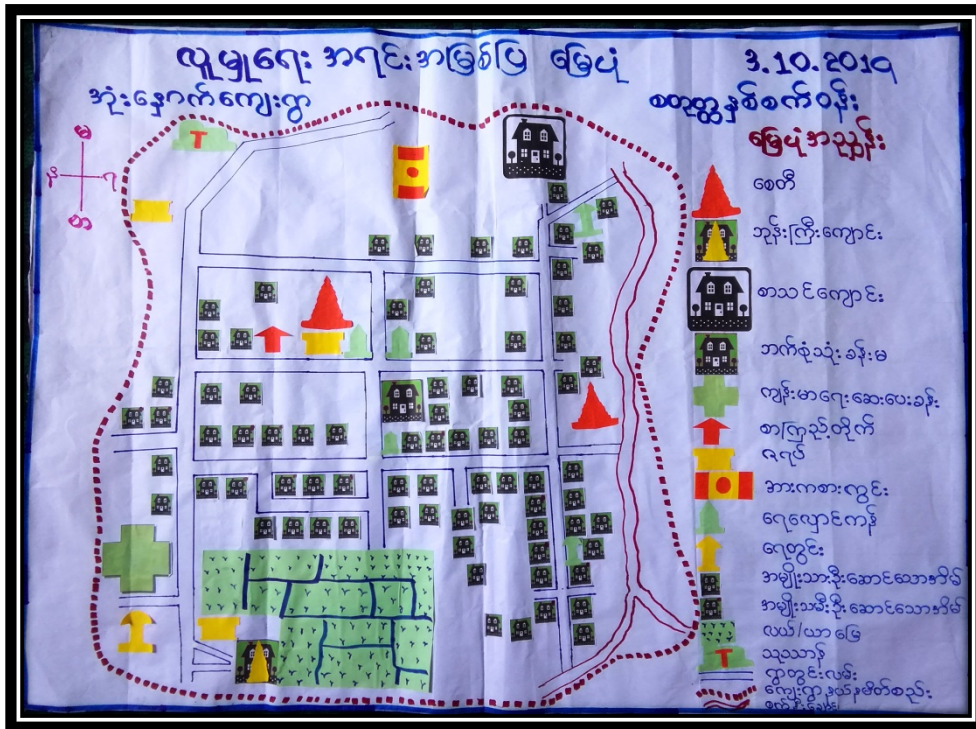 လူမှုရေး အရင်းအမြစ်ပြ မြေပုံ
3.10.2019
အုံးနှောက်ကျေးရွာ
စတုတ္ထနှစ်စက်ဝန်း
မြေပုံအညွှန်း
မ
န
ရ
တ
T
စေတီ
ဘုန်းကြီးကျောင်း
စာသင်ကျောင်း
ဘက်စုံသုံးခန်းမ
ကျန်းမာရေးဆေးပေးခန်း
စာကြည့်တိုက်
ဇရပ်
အားကစားကွင်း
ရေလှောင်ကန်
ရေတွင်း
အမျိုးသားဦးဆောင်သောအိမ်
အမျိုးသမီးဦးဆောင်သောအိမ်
လယ်/ယာမြေ
T
သုဿာန်
ရွာတွင်းလမ်း
ကျေးရွာနယ်နမိတ်စည်း